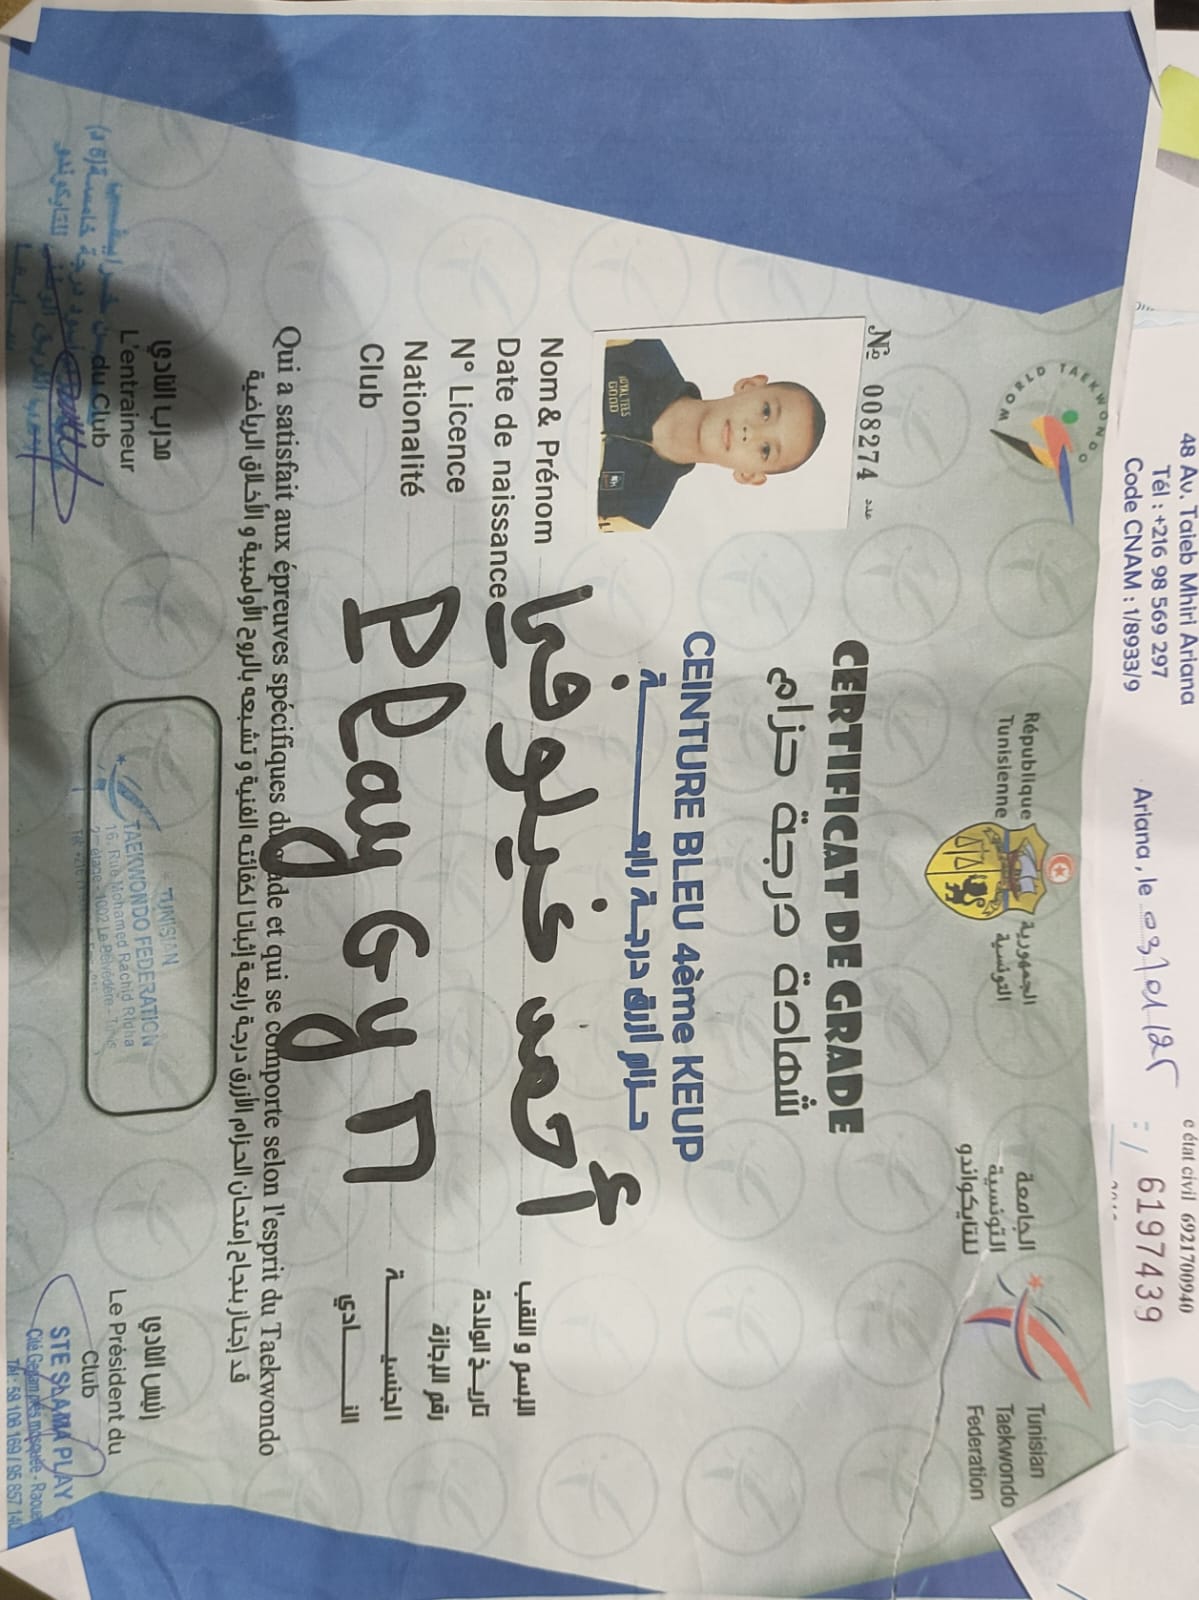 48 Av. Taieb Mhiri Ariana
Tél : +216 98 569 297
Code CNAM : 1/8933/9
Ariana, le
e état civil 6921700940
6197439
WORLD TAEKWONDO
République
Tunisienne
الجمهورية
التونسية
الجامعة
التونسية
للتايكواندو
Tunisian
Taekwondo
Federation
№ 008274 عدد
CERTIFICAT DE GRADE
شهادة درجة حزام
CEINTURE BLEU 4ème KEUP
حـزام أزرق درجـة رابعـــــة
Nom & Prénom أحمد غيلوفي الإسم و اللقب
Date de naissance تاريـخ الولادة
N° Licence رقم الإجازة
Nationalité الجنسيـــــة
Club Play Gym النـــــادي
Qui a satisfait aux épreuves spécifiques du grade et qui se comporte selon l'esprit du Taekwondo
قد إجتاز بنجاح إمتحان الحزام الأزرق درجة رابعة إثباتا لكفائته الفنية و تشبعه بالروح الأولمبية و الأخلاق الرياضية
مدرب النادي
L'entraineur
du Club
TUNISIAN
TAEKWONDO FEDERATION
16, Rue Mohamed Rachid Ridha
رئيس النادي
Le Président du
Club
STE SAAMA PLAY G
Tél : 58 108 169 / 95 857 140